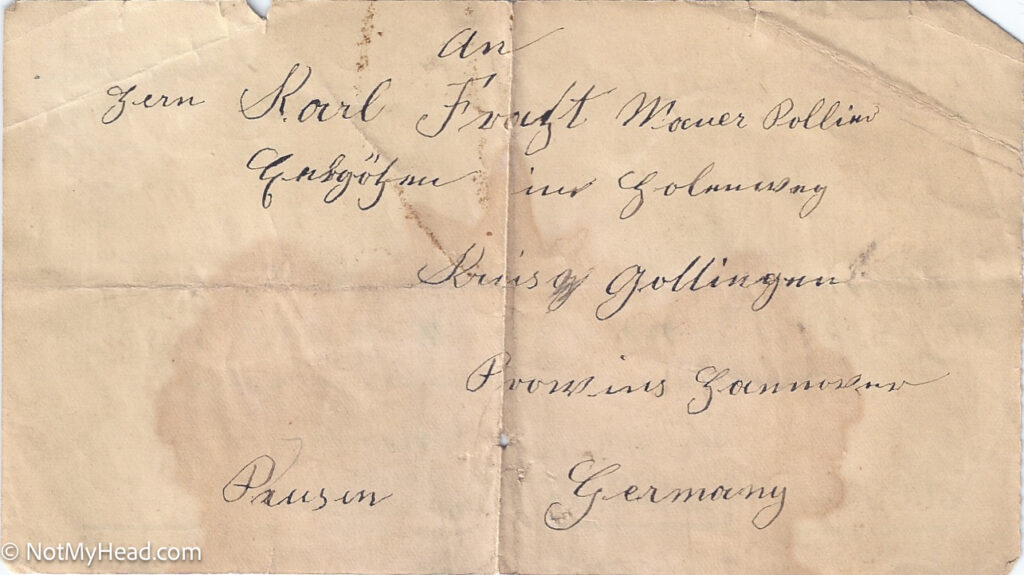 An
Hern Karl Fratzt Mauer Pollier
Ebsgötzen im Holenweg
Kreis Gottingen
Prowins Hannover
Preusen Germany
© NotMyHead.com